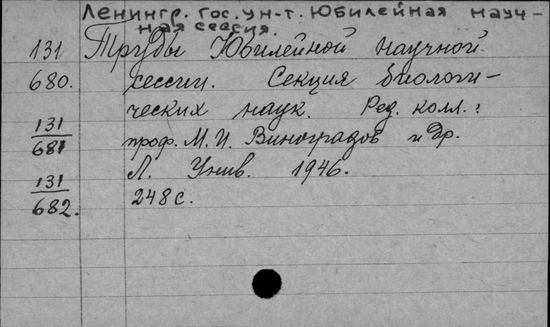 Ленингр. гос. ун-т. Юбилейная науч-
ная сессия.
131 Труды Юбилейной научной
680. сессии. Секция биологи-
ческих наук. Ред. колл.:
131
681 проф. М. И. Виноградов и др.
131 Л. Унив. 1946.
682. 248 с.